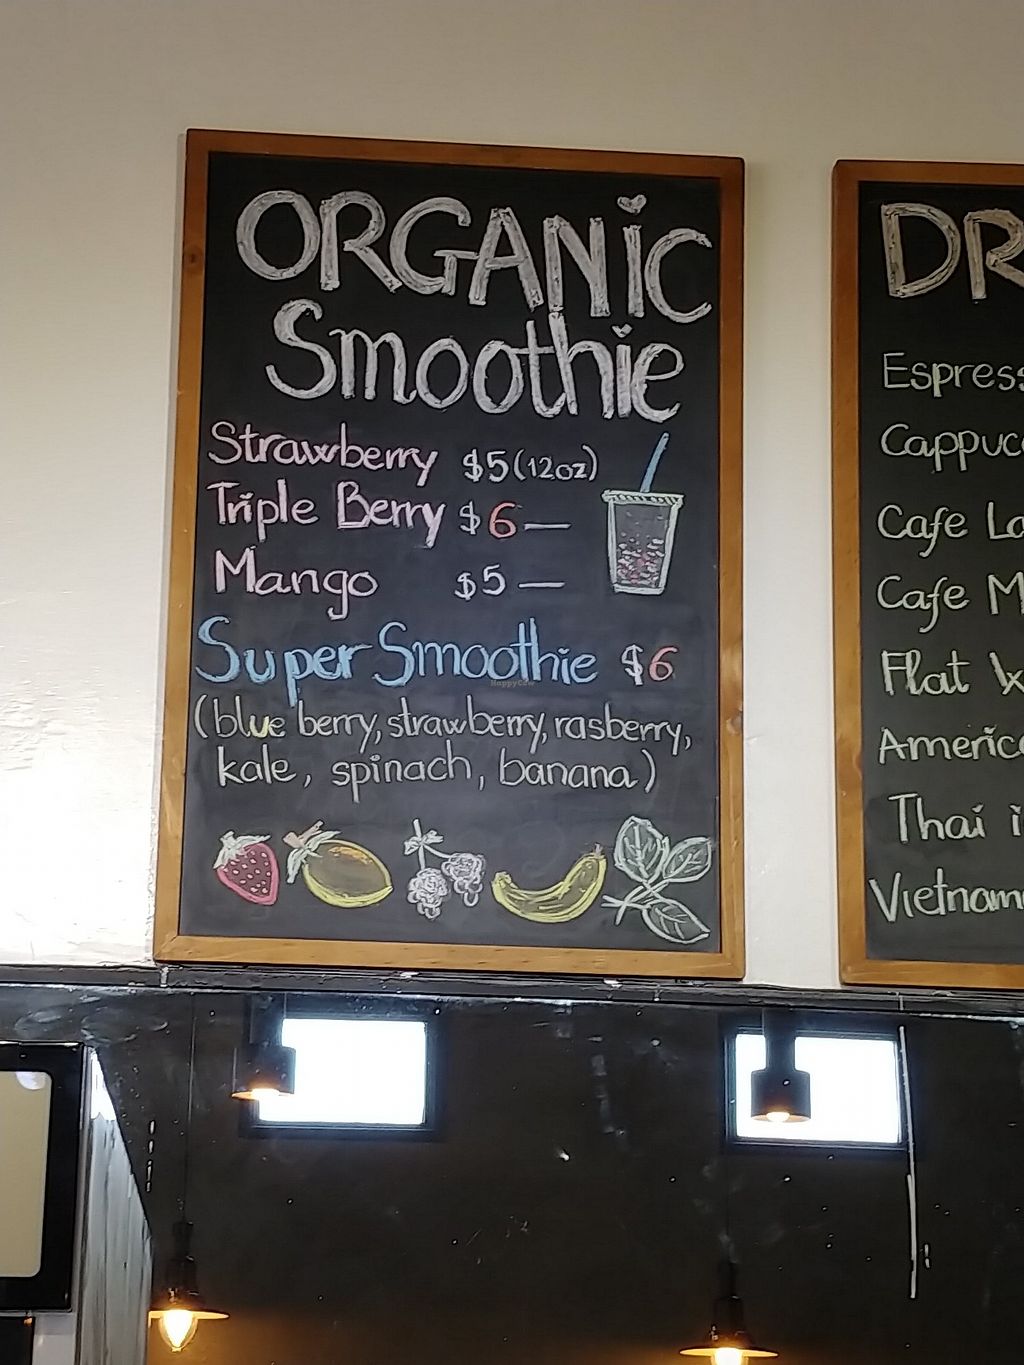 ORGANiC
Smoothie
Strawberry $5(12oz)
Triple Berry $6—
Mango $5—
Super Smoothie $6
HappyCow
(blue berry, strawberry, rasberry,
kale, spinach, banana)
DR
Espress
Cappucc
Cafe La
Cafe M
Flat
Americ
Thai i
Vietnam